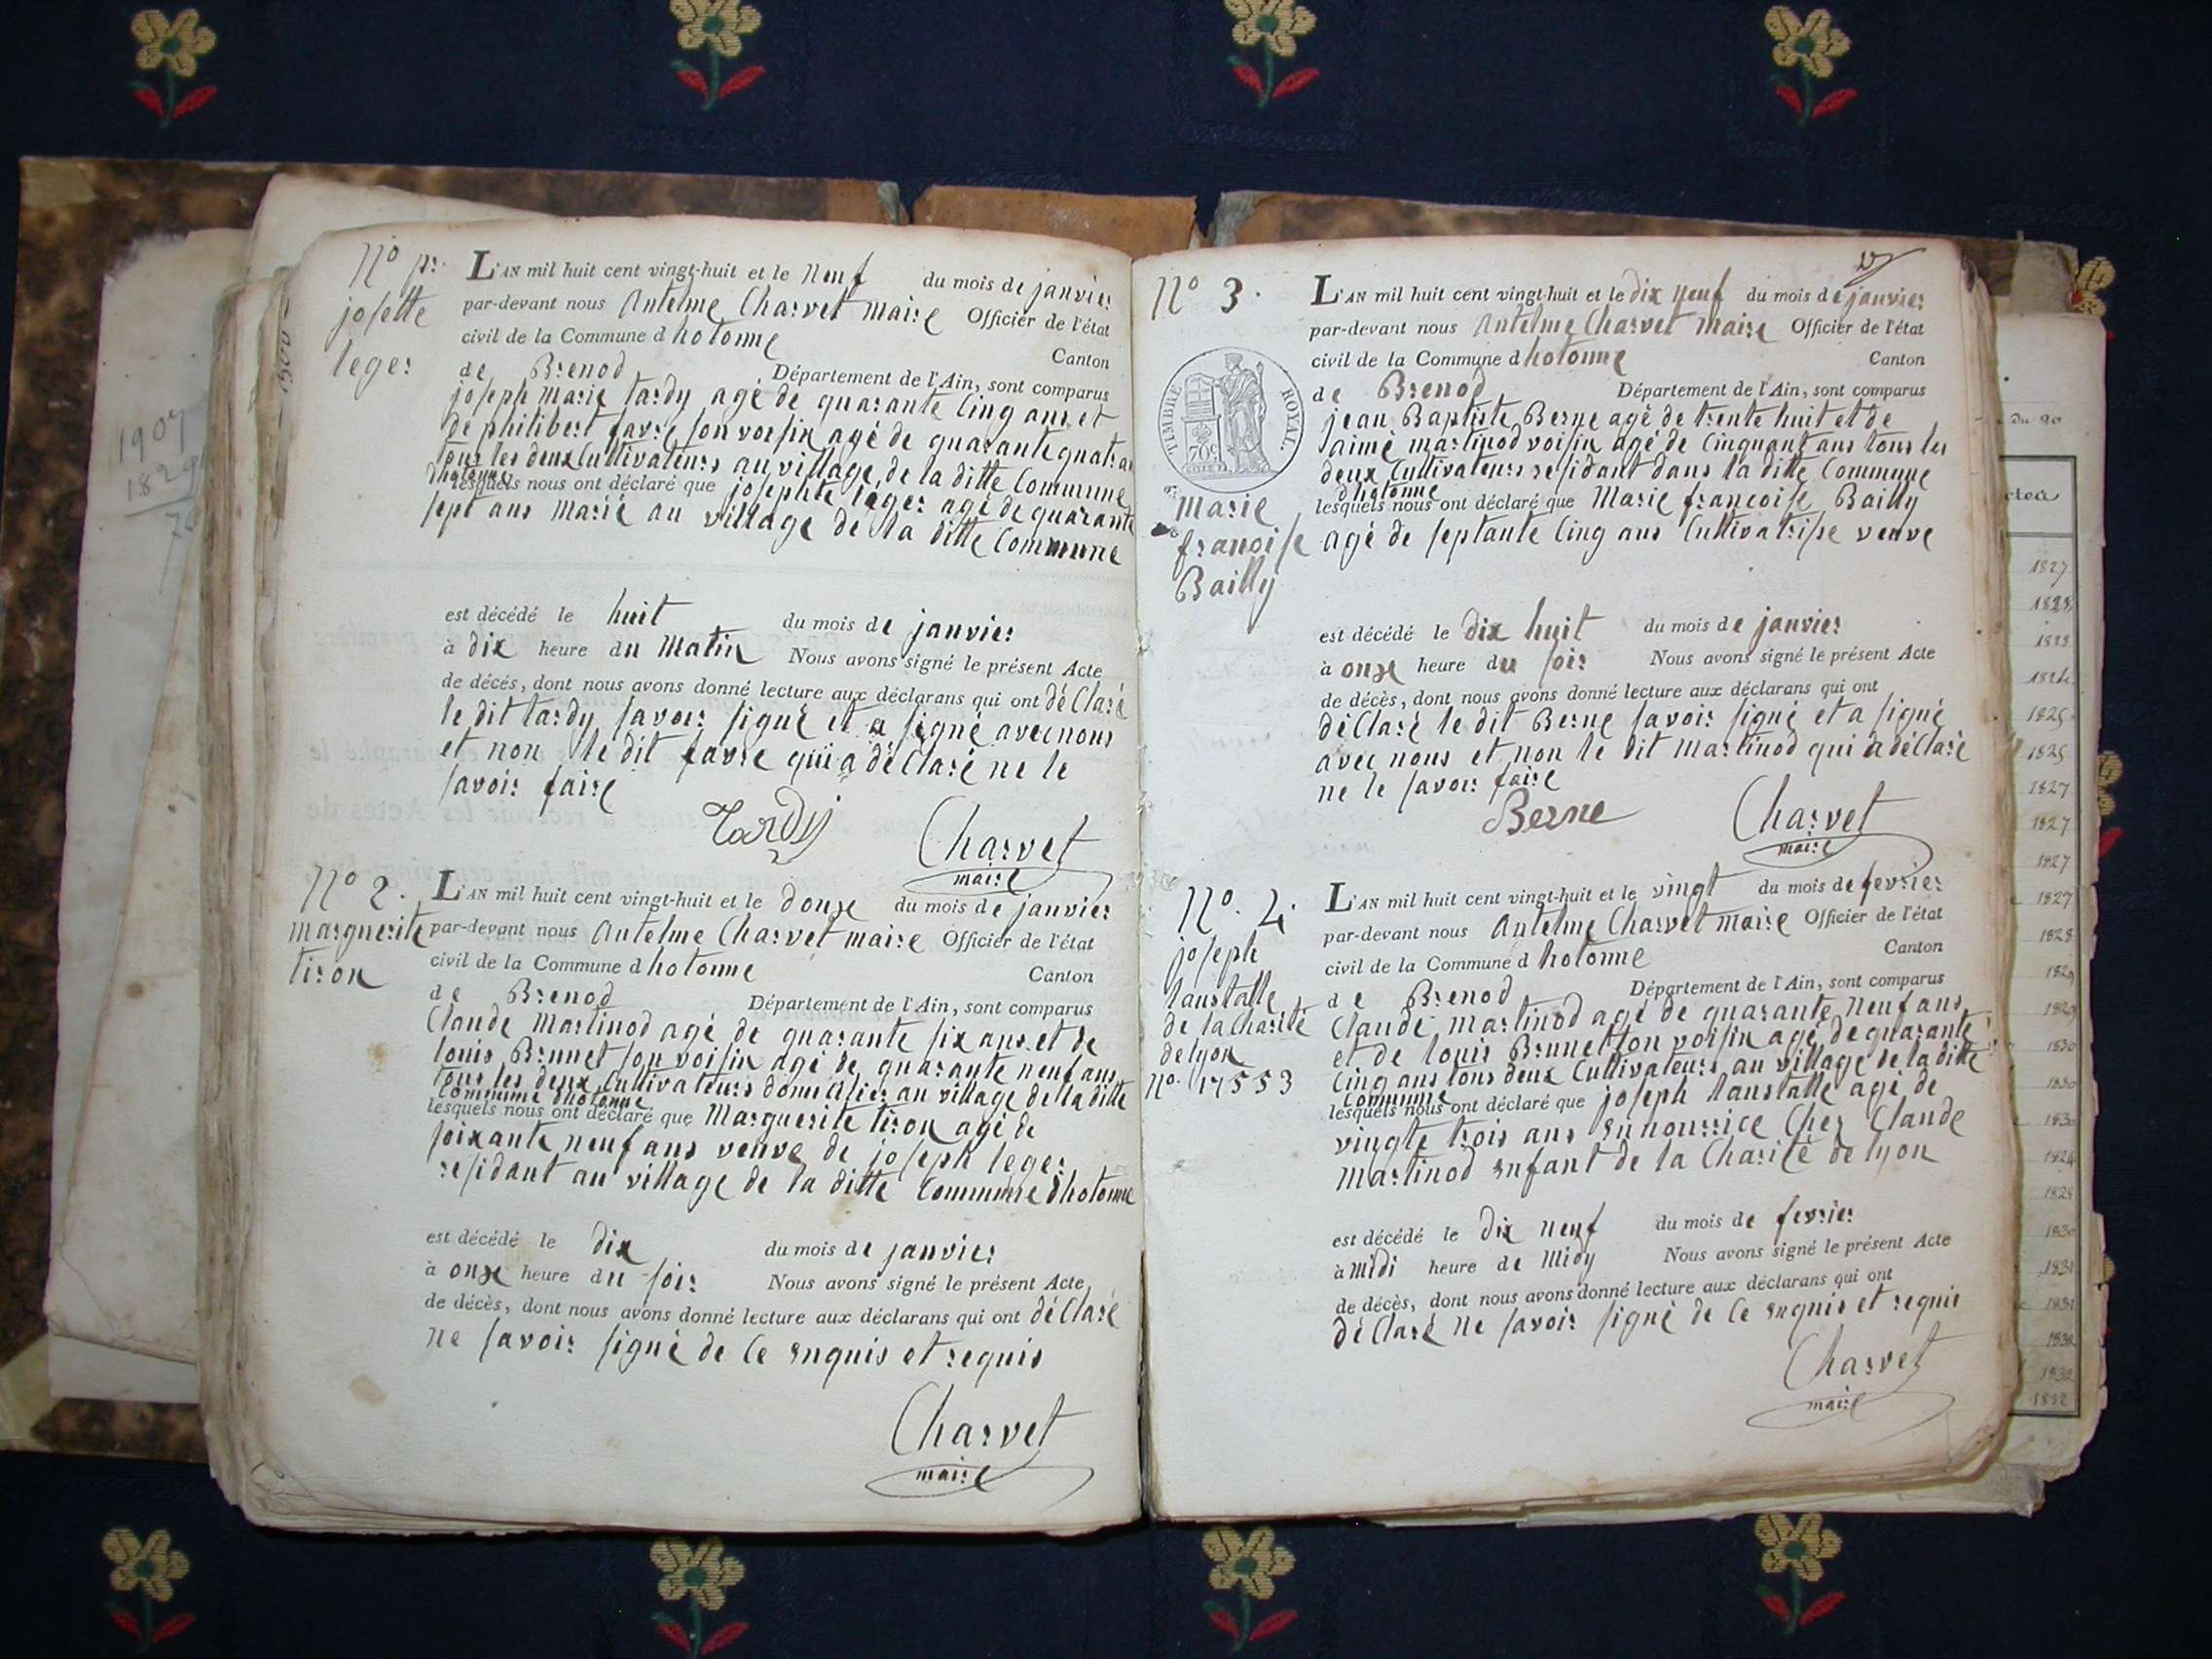 1907
1829
N° pr.
josette
leger
L'AN mil huit cent vingt-huit et le neuf du mois de janvier
par-devant nous Antelme Charvet maire Officier de l'état
civil de la Commune d hotonne Canton
de Brenod Département de l'Ain, sont comparus
joseph marie tardy agé de quarante Cinq ans et
de philibert favre son voisin agé de quarante quatre
tous les deux Cultivateurs au village de la ditte Commune
dhotonne
lesquels nous ont déclaré que josephte leger agé de quarante
sept ans marié au village de la ditte Commune
est décédé le huit du mois de janvier
à dix heure du matin Nous avons signé le présent Acte
de décés, dont nous avons donné lecture aux déclarans qui ont déclaré
le dit tardy savoir signé et a signé avec nous
et non le dit favre qui a déclaré ne le
savoir faire
Tardy
Charvet
maire
N° 2.
marguerite
tiron
L'AN mil huit cent vingt-huit et le douze du mois de janvier
par-devant nous Antelme Charvet maire Officier de l'état
civil de la Commune d hotonne Canton
de Brenod Département de l'Ain, sont comparus
Claude Martinod agé de quarante six ans et de
louis Brunet son voisin agé de quarante neuf ans
tous les deux Cultivateurs domicilier au village de la ditte
Commune dhotonne
lesquels nous ont déclaré que Marguerite tiron agé de
soixante neuf ans veuve de joseph leger
residant au village de la ditte Commune dhotonne
est décédé le dix du mois de janvier
à onze heure du soir Nous avons signé le présent Acte
de décès, dont nous avons donné lecture aux déclarans qui ont déclaré
ne savoir signé de Ce enquis et requis
Charvet
maire
N° 3.
TIMBRE ROYAL
70c
Marie
françoise
Bailly
L'AN mil huit cent vingt-huit et le dix neuf du mois de janvier
par-devant nous Antelme Charvet maire Officier de l'état
civil de la Commune d hotonne Canton
de Brenod Département de l'Ain, sont comparus
jean Baptiste Berne agé de trente huit et de
aimé martinod voisin agé de Cinquante ans tous les
deux Cultivateurs residant dans la ditte Commune
dhotonne
lesquels nous ont déclaré que Marie françoise Bailly
agé de septante Cinq ans Cultivatrise veuve
est décédé le dix huit du mois de janvier
à onze heure du soir Nous avons signé le présent Acte
de décès, dont nous avons donné lecture aux déclarans qui ont
déclaré le dit Berne savoir signé et a signé
avec nous et non le dit martinod qui a déclaré
ne le savoir faire
Berne
Charvet
maire
N°. 4.
joseph
laustalle
de la Charité
de lyon
N°. 17553
L'AN mil huit cent vingt-huit et le vingt du mois de fevrier
par-devant nous Antelme Charvet maire Officier de l'état
civil de la Commune d hotonne Canton
de Brenod Département de l'Ain, sont comparus
Claude martinod agé de quarante neuf ans
et de louis Brunet son voisin agé de quarante
Cinq ans tous deux Cultivateurs au village de la ditte
Commune
lesquels nous ont déclaré que joseph laustalle agé de
vingte trois ans en nourrice Chez Claude
martinod enfant de la Charité de lyon
est décédé le dix neuf du mois de fevrier
à midi heure de Midy Nous avons signé le présent Acte
de décès, dont nous avons donné lecture aux déclarans qui ont
déclaré ne savoir signé de Ce enquis et requis
Charvet
maire
1827
1828
1827
1827
1827
1827
1828
1829
1829
1830
1830
1830
1830
1831
1831
1832
1832
1832